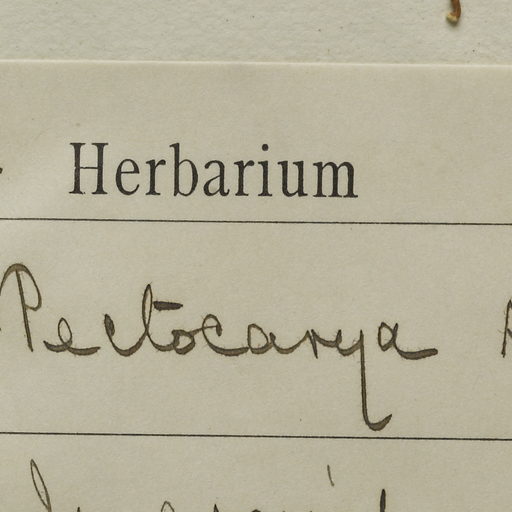 Herbarium
Pectocarya